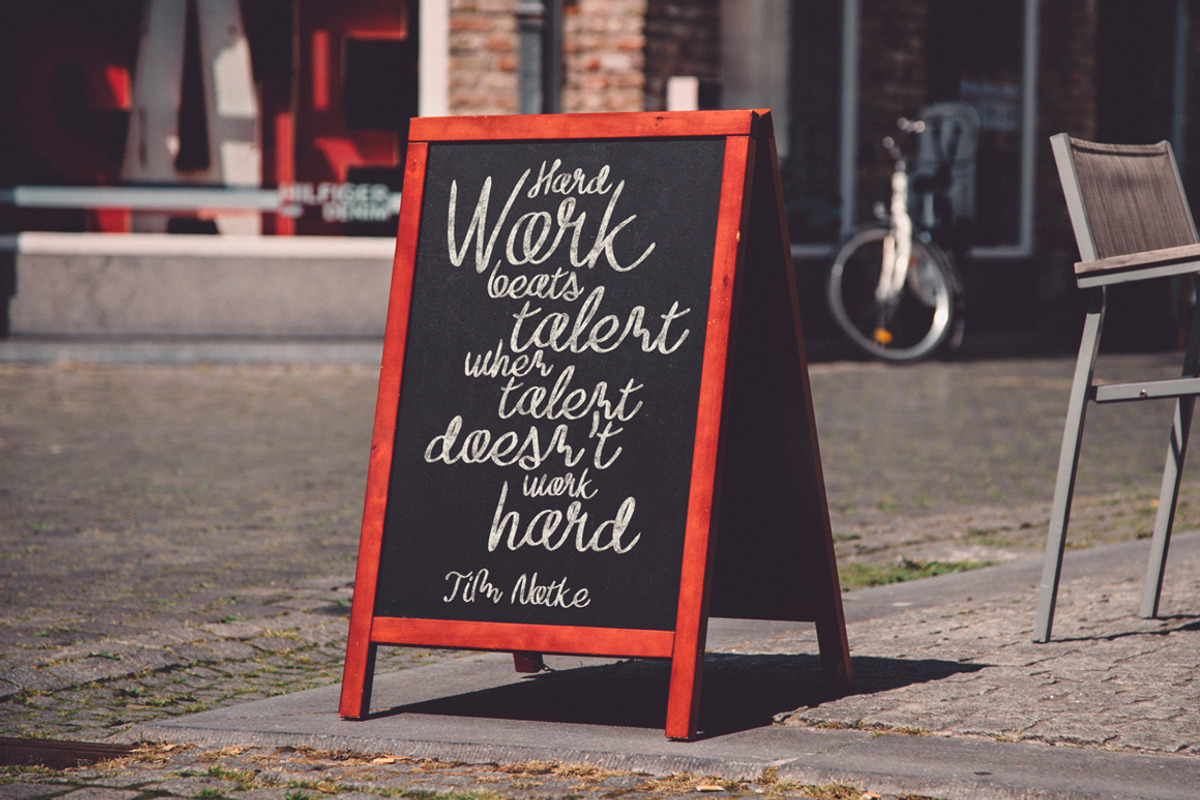 SALE
HILFIGER
DENIM
Hard
Work
beats
talent
when
talent
doesn't
work
hard
Tim Notke